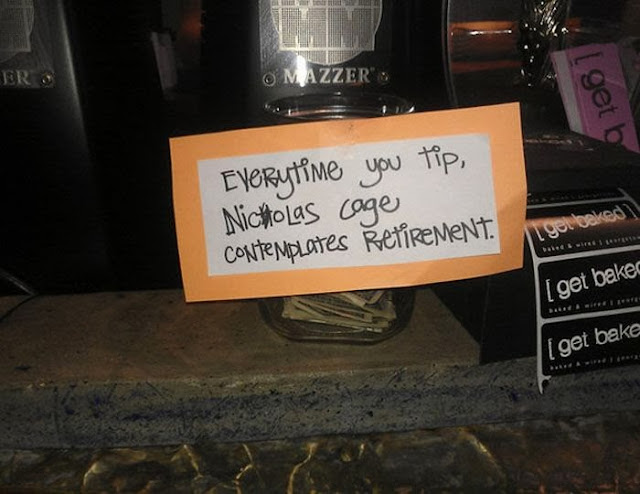 ER
MAZZER
Everytime you tip,
Nicholas Cage
contemplates retirement.
[ get b
[ get baked ]
baked & wired | georgetow
[ get baked
baked & wired | george
[ get bake
baked & wired | geor